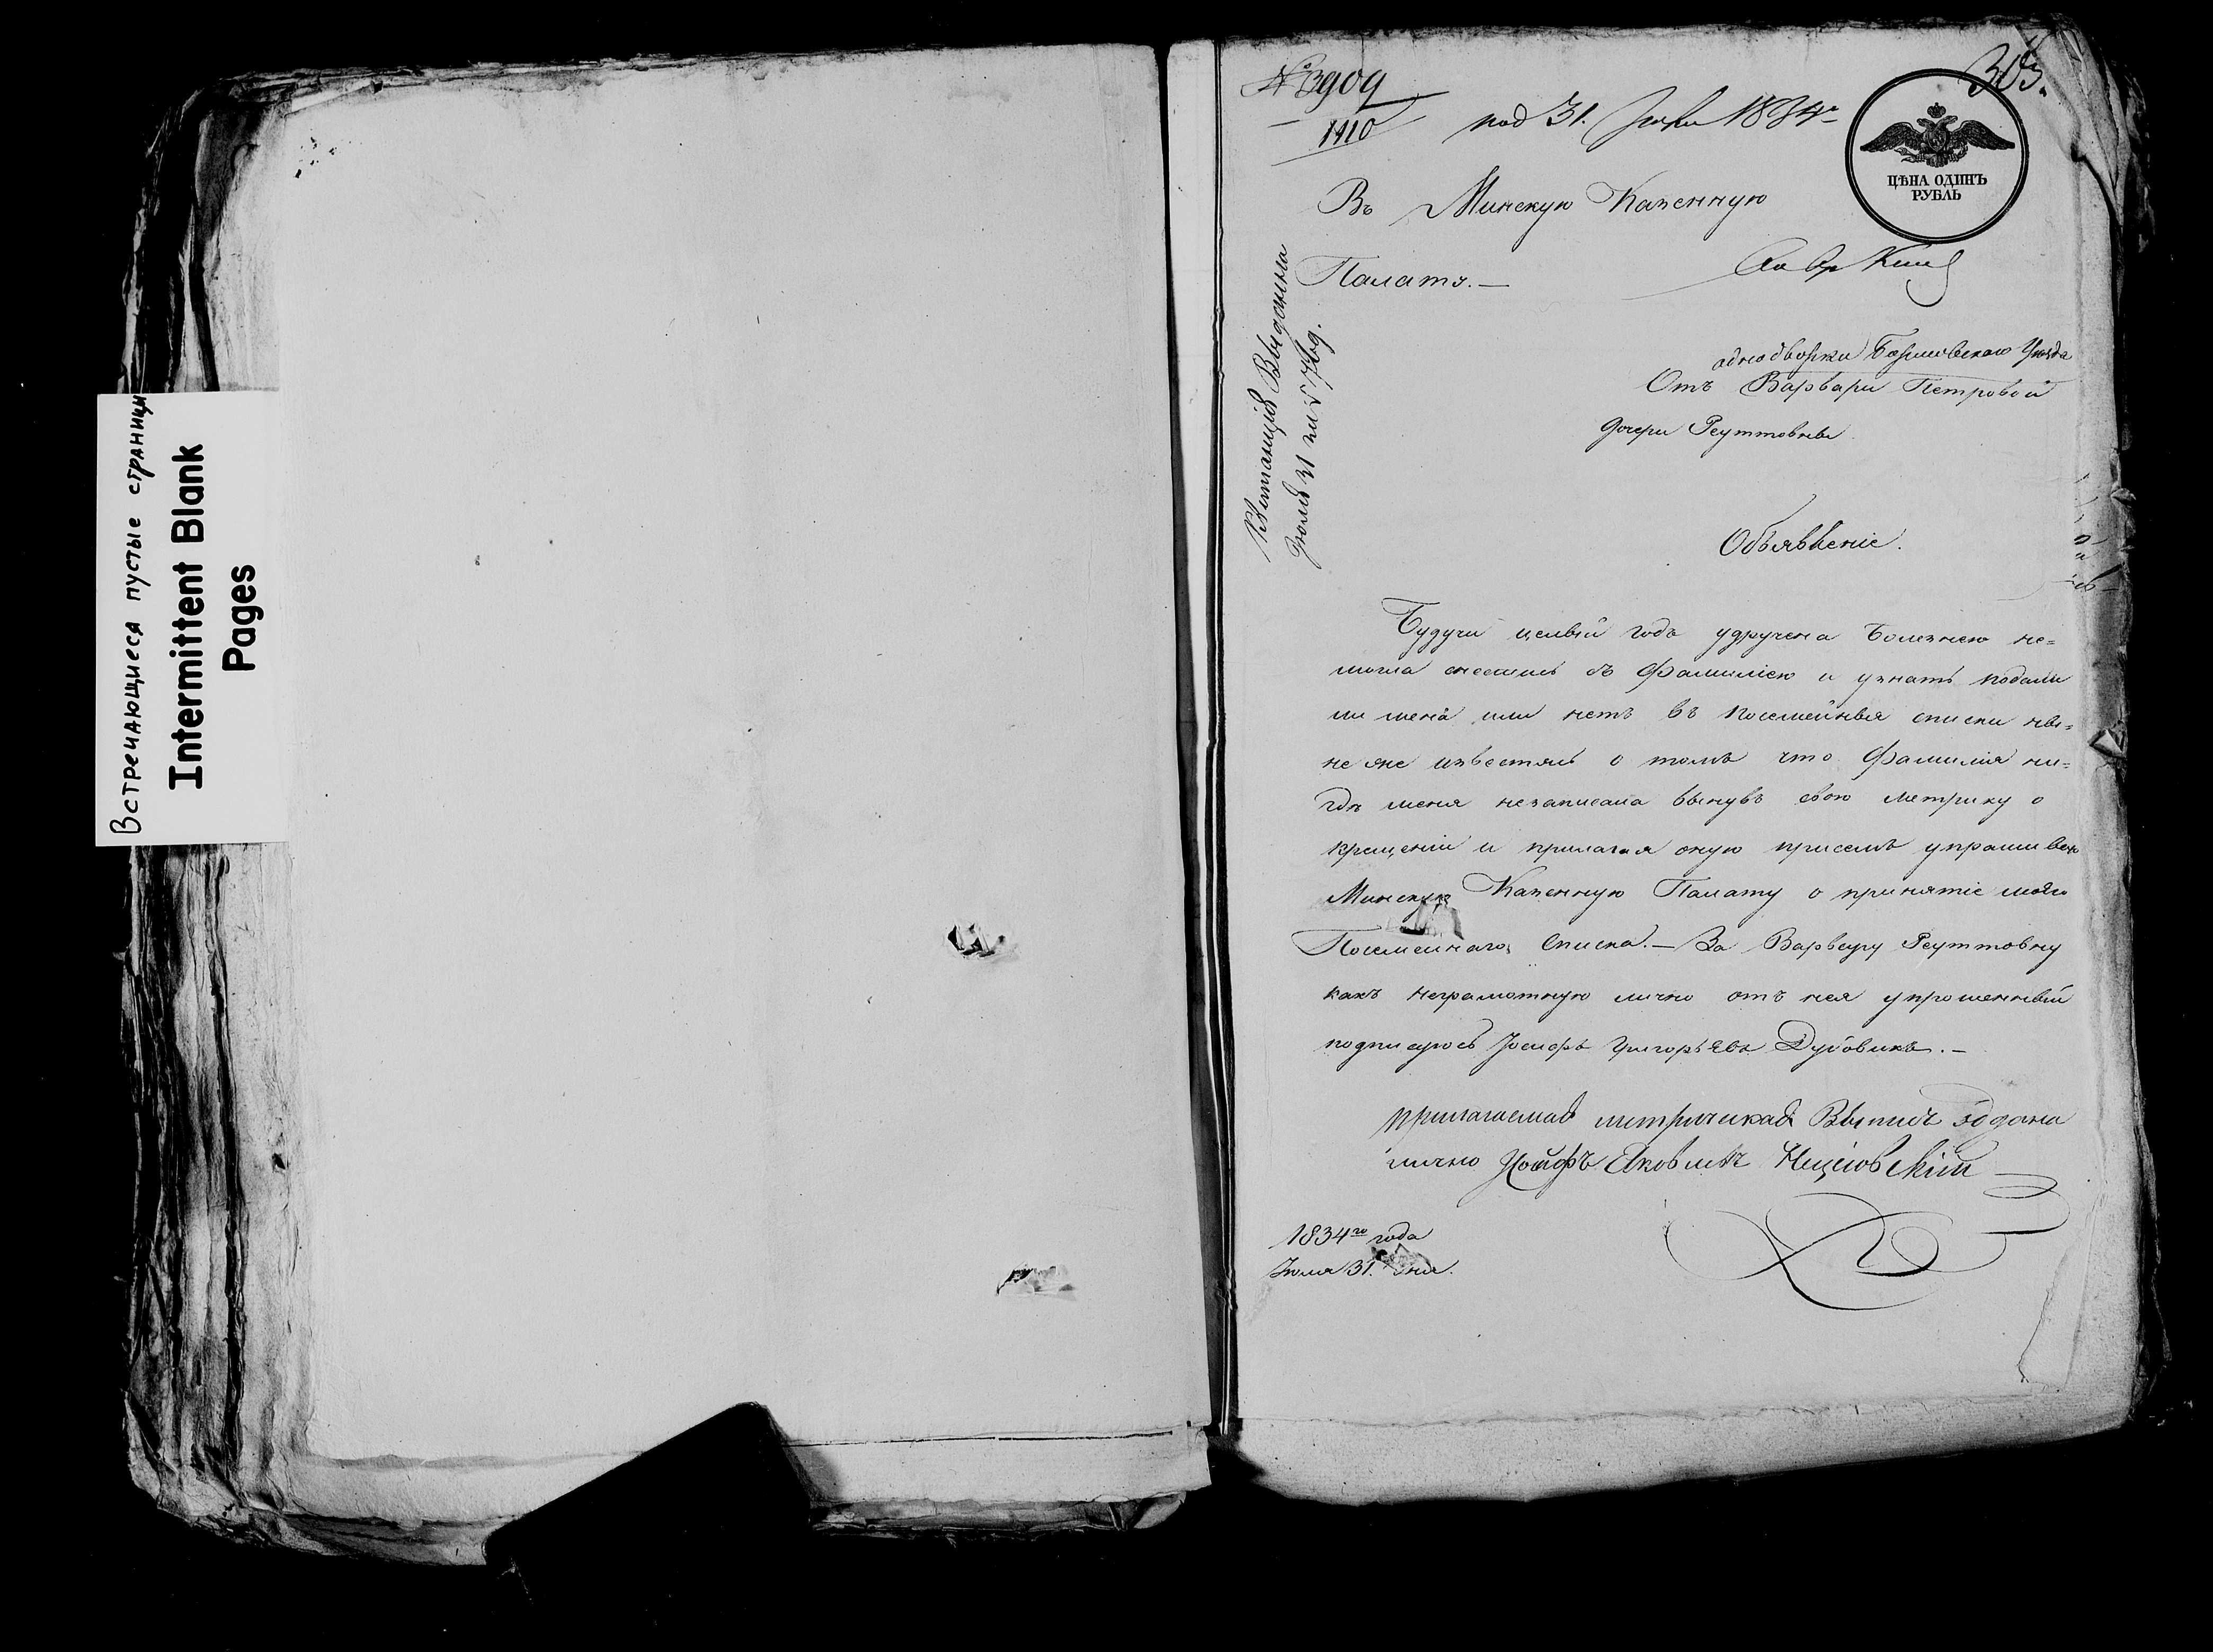 Встречающиеся пустые страницы
Intermittent Blank
Pages
№ 3909
1110
под 31. Июля 1834го
303.
ЦѢНА ОДИНЪ
РУБЛЬ
Въ Минскую Казенную
Палату.—
однодворки Борисовскаго Уѣзда
Отъ Варвари Петровой
дочери Реуттовны
Квитанція Выдана
Іюля 31 1834 год.
Объявленіе.
Будучи целый годъ удручена болезнею не=
могла снестись съ Фамиліею и узнать подали
ли меня или нетъ въ посемейныя списки ны=
не же известясь о томъ что Фамилія ни=
гдѣ меня незаписала вынувъ свою метрику о
крещеніи и прилагая оную присемъ упрашиваю
Минскую Казенную Палату о принятіе моего
Посемейнаго Списка.— За Варвару Реуттовну
какъ неграмотную лично отъ нея упрошенный
подписуюсь Іосифъ Григорьевъ Дубовикъ.—
прилагаемая метрическая Выпись
лично Іосифъ Яковлевъ
1834го года
Іюля 31. дня.